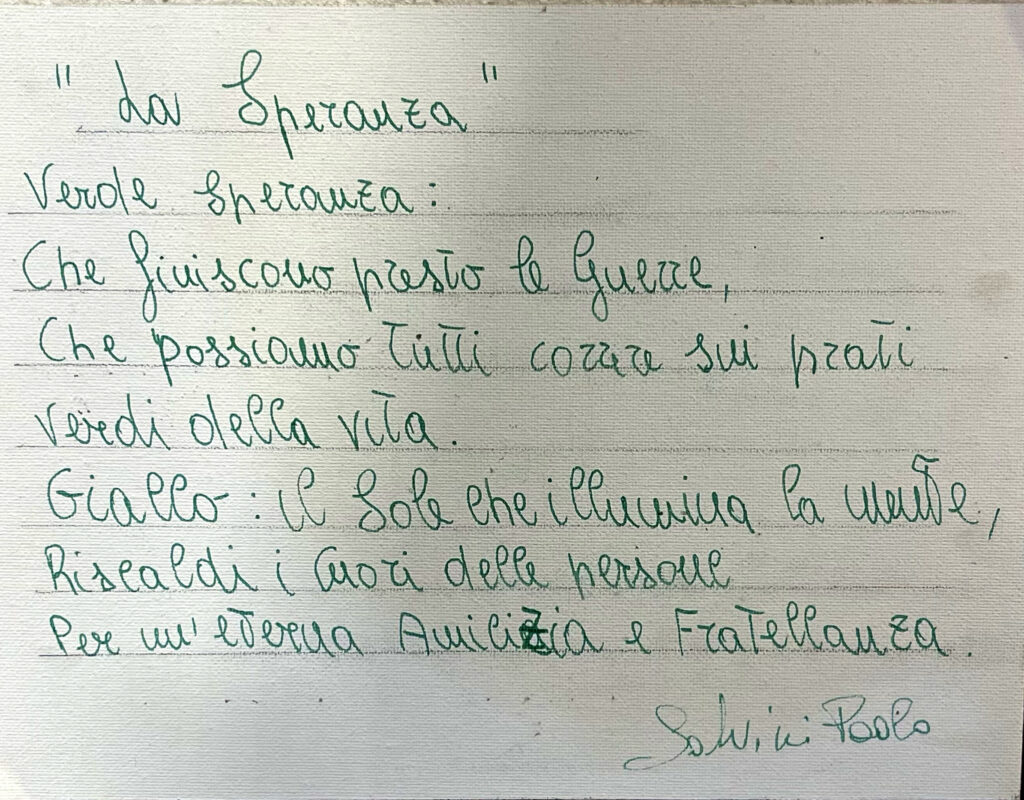 " La Speranza "
Verde Speranza:
Che finiscono presto le Guerre,
Che possiamo Tutti correre sui prati
verdi della vita.
Giallo: il Sole che illumina la mente,
Riscaldi i Cuori delle persone
Per un'eterna Amicizia e Fratellanza.
Salvini Paolo